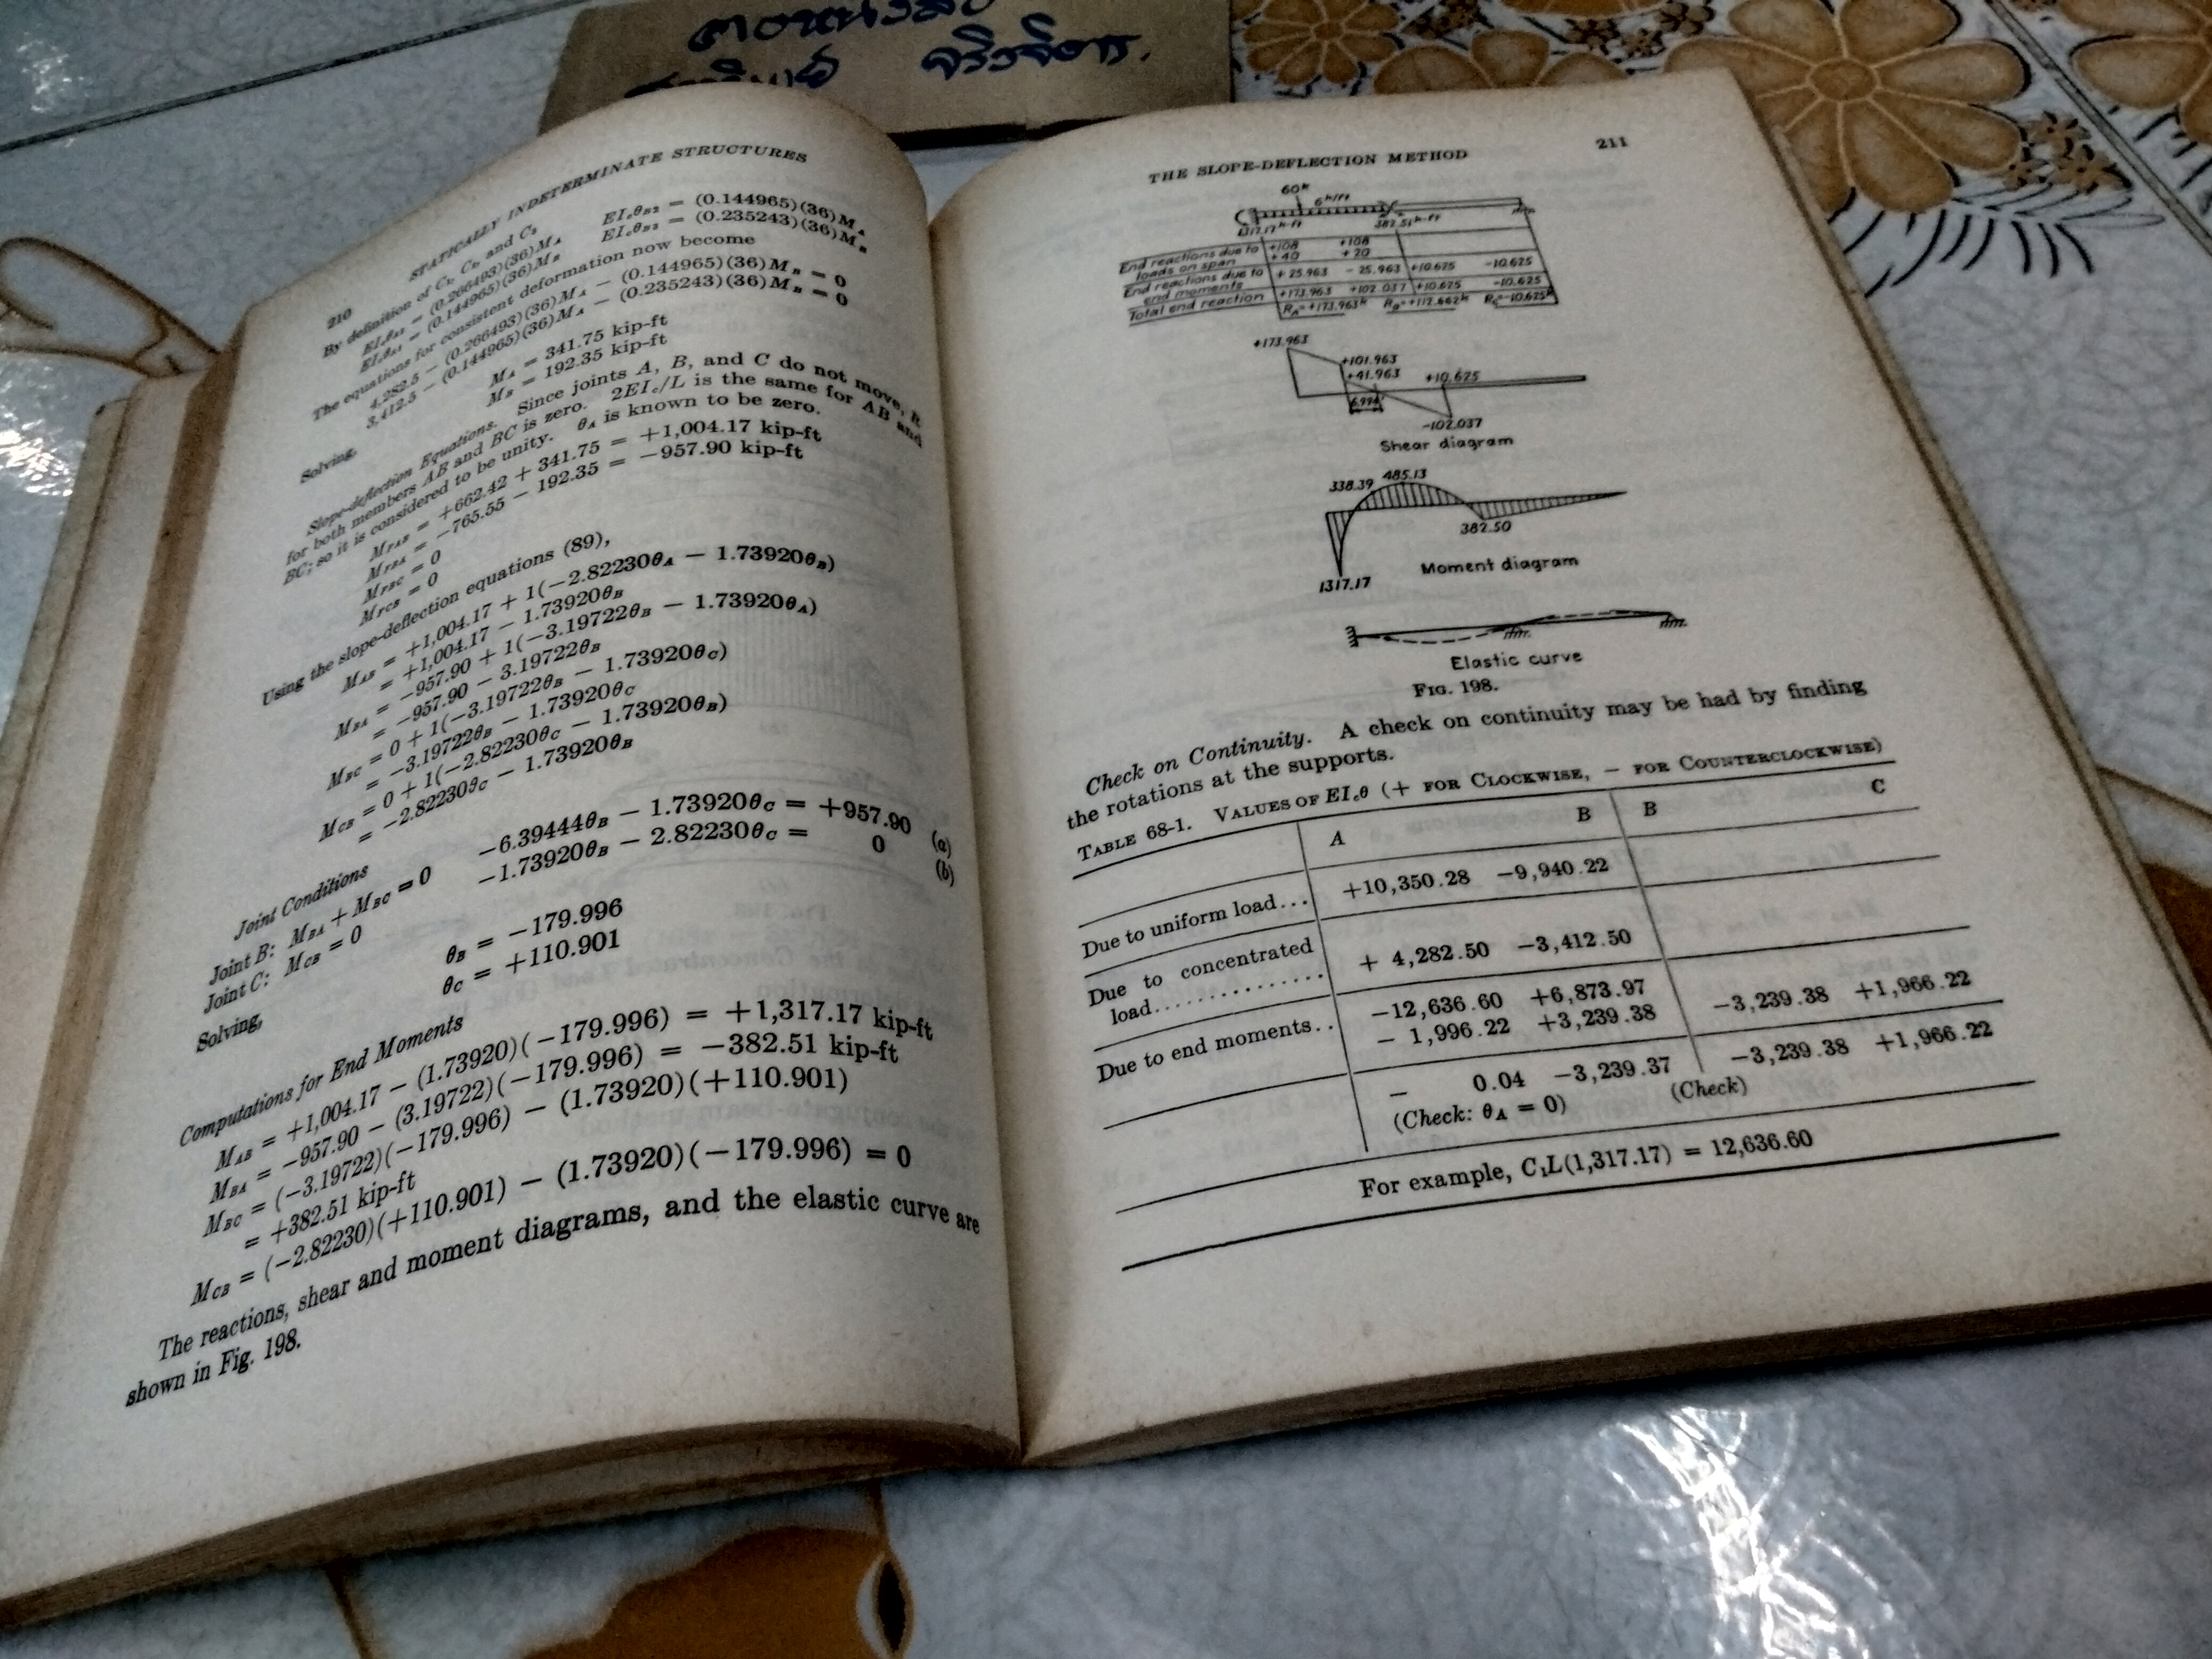 จิรวิจิตร.
210
STATICALLY INDETERMINATE STRUCTURES
By definition of C₁, C₂, and C₃
EI꜀θ_A1 = (0.266493)(36)M_A EI꜀θ_B2 = (0.144965)(36)M_A
EI꜀θ_A1 = (0.144965)(36)M_B EI꜀θ_B3 = (0.235243)(36)M_B
The equations for consistent deformation now become
4,282.5 − (0.266493)(36)M_A − (0.144965)(36)M_B = 0
3,412.5 − (0.144965)(36)M_A − (0.235243)(36)M_B = 0
Solving,
M_A = 341.75 kip-ft
M_B = 192.35 kip-ft
Slope-deflection Equations. Since joints A, B, and C do not move, R
for both members AB and BC is zero. 2EI꜀/L is the same for AB and
BC; so it is considered to be unity. θ_A is known to be zero.
M_FAB = +662.42 + 341.75 = +1,004.17 kip-ft
M_FBA = −765.55 − 192.35 = −957.90 kip-ft
M_FBC = 0
M_FCB = 0
Using the slope-deflection equations (89),
M_AB = +1,004.17 + 1(−2.82230θ_A − 1.73920θ_B)
= +1,004.17 − 1.73920θ_B
M_BA = −957.90 + 1(−3.19722θ_B − 1.73920θ_A)
= −957.90 − 3.19722θ_B
M_BC = 0 + 1(−3.19722θ_B − 1.73920θ_C)
= −3.19722θ_B − 1.73920θ_C
M_CB = 0 + 1(−2.82230θ_C − 1.73920θ_B)
= −2.82230θ_C − 1.73920θ_B
Joint Conditions
Joint B: M_BA + M_BC = 0 −6.39444θ_B − 1.73920θ_C = +957.90 (a)
Joint C: M_CB = 0 −1.73920θ_B − 2.82230θ_C = 0 (b)
Solving,
θ_B = −179.996
θ_C = +110.901
Computations for End Moments
M_AB = +1,004.17 − (1.73920)(−179.996) = +1,317.17 kip-ft
M_BA = −957.90 − (3.19722)(−179.996) = −382.51 kip-ft
M_BC = (−3.19722)(−179.996) − (1.73920)(+110.901)
= +382.51 kip-ft
M_CB = (−2.82230)(+110.901) − (1.73920)(−179.996) = 0
The reactions, shear and moment diagrams, and the elastic curve are
shown in Fig. 198.
THE SLOPE-DEFLECTION METHOD 211
60k
6k/ft
1317.17k-ft 382.51k-ft
End reactions due to loads on span +108 +108
+40 +20
End reactions due to end moments +25.963 −25.963 +10.625 −10.625
Total end reaction +173.963 +102.037 +10.625 −10.625
R_A=+173.963k R_B=+112.662k R_C=−10.625k
+173.963
+101.963
+41.963 +10.625
6.994'
−102.037
Shear diagram
338.39 485.13
382.50
1317.17
Moment diagram
Elastic curve
FIG. 198.
Check on Continuity. A check on continuity may be had by finding
the rotations at the supports.
TABLE 68-1. VALUES OF EI꜀θ (+ FOR CLOCKWISE, − FOR COUNTERCLOCKWISE)
A B B C
Due to uniform load... +10,350.28 −9,940.22
Due to concentrated
load............... + 4,282.50 −3,412.50
Due to end moments.. −12,636.60 +6,873.97 −3,239.38 +1,966.22
− 1,996.22 +3,239.38
− 0.04 −3,239.37 −3,239.38 +1,966.22
(Check: θ_A = 0) (Check)
For example, C₁L(1,317.17) = 12,636.60